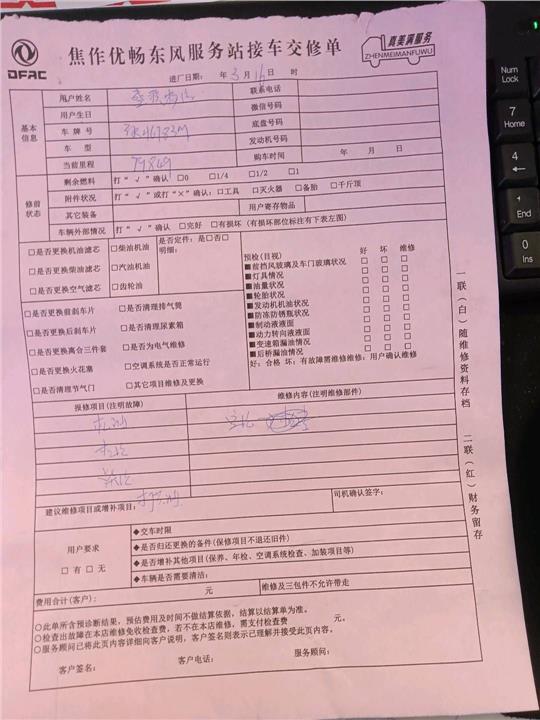 DFAC
焦作优畅东风服务站接车交修单
真美满服务
ZHENMEIMANFUWU
进厂日期: 年 3 月 16 日 时
基本信息
用户姓名 联系电话
用户生日 微信号码
车 牌 号 底盘号码
车 型 发动机号码
当前里程 79849 购车时间 年 月 日
修前状态
剩余燃料 打“√”确认 □0 □1/4 □1/2 □1
附件状况 打“√”或打“×”确认:□工具 □灭火器 □备胎 □千斤顶
其它装备 用户寄存物品
车辆外部情况 打“√”确认 □完好 □有损坏 (有损坏部位标注有下表左图)
□是否更换机油滤芯 □柴油机油 是否定件:是□否□
明细:
□是否更换柴油滤芯 □汽油机油
□是否更换空气滤芯 □齿轮油
预检(目视) 好 坏 维修
■前挡风玻璃及车门玻璃状况 □ □ □
■灯具情况 □ □ □
■油量状况 □ □ □
■轮胎状况 □ □ □
■发动机机油状况 □ □ □
■防冻防锈瓶状况 □ □ □
■制动液液面 □ □ □
■动力转向液液面 □ □ □
■变速箱漏油情况 □ □ □
■后桥漏油情况 □ □ □
好:合格 坏:有故障需维修维修:用户确认维修
□是否更换前刹车片 □是否清理排气筒
□是否更换后刹车片 □是否清理尿素箱
□是否更换离合三件套 □是否为电气维修
□是否更换火花塞 □空调系统是否正常运行
□是否清理节气门 □其它项目维修及更换
报修项目(注明故障) 维修内容(注明维修部件)
建议维修项目或增补项目: 司机确认签字:
用户要求
□ 有 □ 无
◆交车时限
◆是否归还更换的备件(保修项目不退还旧件)
◆是否增补其他项目(保养、年检、空调系统检查、加装项目等)
◆车辆是否需要清洁:
费用合计(客户): 元 维修及三包件不允许带走
○此单所含预诊断结果,预估费用及时间不做结算依据,结算以结算单为准。
○检查出故障在本店维修免收检查费,若不在本店维修,需支付检查费 元。
○服务顾问已将此页内容详细向客户说明,客户签名则表示已理解并接受此页内容。
客户签名: 客户电话: 服务顾问:
一联(白)随维修资料存档 二联(红)财务留存
Num
Lock
7
Home
4
←
1
End
0
Ins